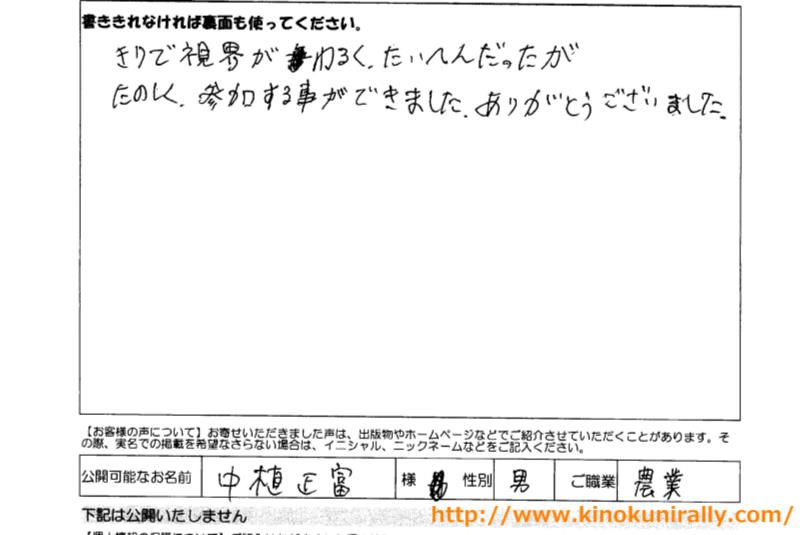 書ききれなければ裏面も使ってください。
きりで視界がわるく、たいへんだったが
たのしく、参加する事ができました。ありがとうございました。
【お客様の声について】お寄せいただきました声は、出版物やホームページなどでご紹介させていただくことがあります。そ
の際、実名での掲載を希望なさらない場合は、イニシャル、ニックネームなどをご記入ください。
公開可能なお名前 中植正富 様 性別 男 ご職業 農業
下記は公開いたしません
http://www.kinokunirally.com/